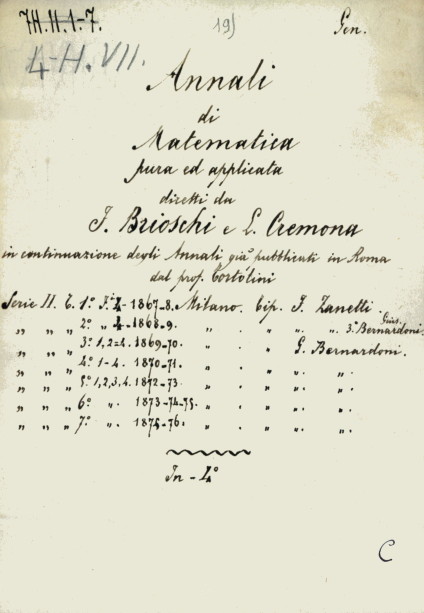 7H.H.1-7.
19)
Gen.
4-H.VII.
Annali
di
Matematica
pura ed applicata
diretti da
F. Brioschi e L. Cremona
in continuazione degli Annali già pubblicati in Roma
dal prof. Tortolini
Serie II. T. 1º 1867-8. Milano. Tip. F. Zanetti
" " " 2º " 1868-9. " . " . " " . 3. Gius. Bernardoni.
" " " 3º 1,2=4. 1869-70. " . " . G. Bernardoni.
" " " 4º 1-4. 1870-71. " . " . " " .
" " " 5º 1,2,3,4. 1872-73. " . " . " " .
" " " 6º " . 1873-74-75. " . " . " " .
" " " 7º " . 1875-76. " . " . " " .
In-4º
C